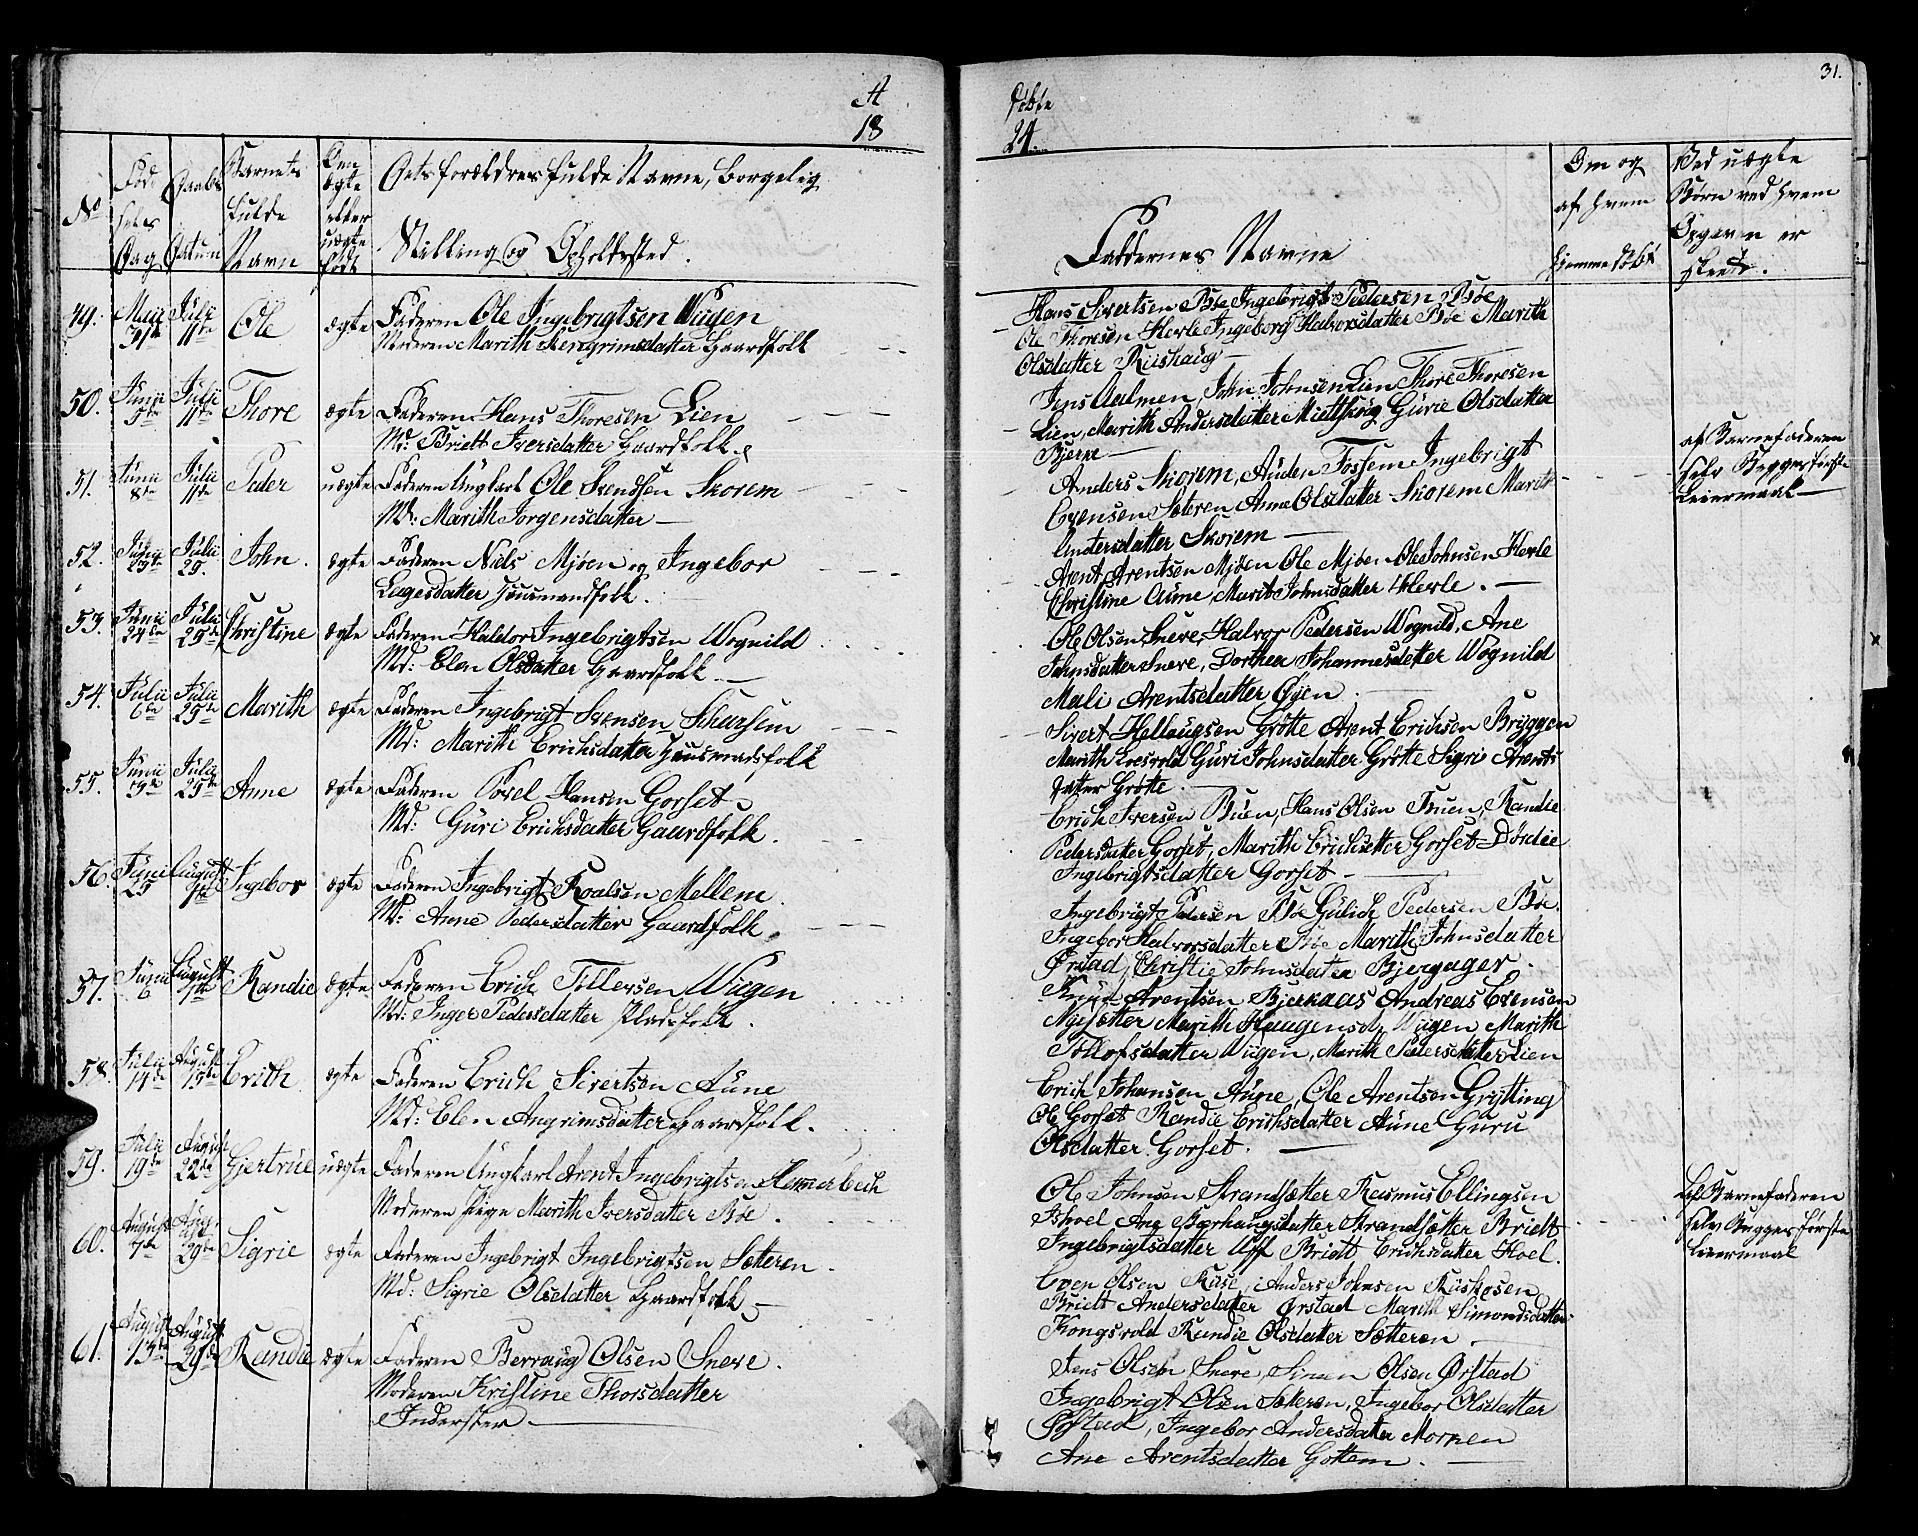 A
18
No
Fød
sels
Dag
Daabs
Datum
Barnets
fulde
Navn
Om
ægte
eller
uægte
født
Getsforældres fulde Navne, borgelig
Stilling og Opholdssted.
49. Maii 31te Julii 11te Ole ægte Faderen Ole Ingebrigtsen Wiigen
Moderen Marith Stengrimsdatter Gaardfolk
50. Junii 5te Julii 11te Thore ægte Faderen Hans Thoresen Lien
Md: Briett Iversdatter Gaardfolk
51. Junii 8te Julii 11te Peder uægte Faderen Ungkarl Ole Svendsen Skorem
Md: Marith Jorgensdatter
52. Julii 25. John. ægte Faderen Niels Mjøen og Ingebor
Lagesdatter Huusmandfolk.
53. Junii 24de Julii 25de Christine ægte Faderen Haldor Ingebrigtsen Wognild
Md: Elen Olsdatter Gaardfolk.
54. Julii 6te Julii 25de Marith ægte Faderen Ingebrigt Svensen
Md: Marith Erichsdatter Huusmandsfolk
55. Junii Julii 25de Anne ægte Faderen Povel Hansen Gorset
Md: Guri Erichsdatter Gaardfolk.
56. Junii 25 August Ingebor ægte Faderen Ingebrigt Roalsen Mellem.
Md: Anne Pedersdatter Gaardfolk.
57. Junii 6 August Randie ægte Faderen Erich Tillersen Wiigen
Md: Inger Pedersdatter Pladsfolk.
58. Julii 14de August 15de Erith ægte Faderen Erich Sivertsen Aune
Md: Elen Angrimsdatter Gaardfolk.
59. Julii 19de August 22de Gjertrue uægte Faderen Ungkarl Arent Ingebrigtsen Hammerbech
Moderen Pige Marith Iversdatter Bøe.
60. August 7de August 29de Sigrie ægte Faderen Ingebrigt Ingebrigtsen Sætteren.
Md: Sigrie Olsdatter Gaardfolk
61. August 13de August 29de Randie ægte Faderen Berraug Olsen Sneve.
Moderen Kristine Thorsdatter
Inderster
31.
Døbte
24.
Faddernes Navne
Om og
af hvem
hjemmedøbt
Ved uægte
Børn ved hvem
Opgaven er
skeedt.
Hans Sivertsen Bøe Ingebrigt Pedersen Bøe
Ole Thoresen Horle Ingeborg Halvorsdatter Bøe Marith
Olsdatter Riishaug
Jens Aalmen, John Johnsen Lien Thore Thoresen
Lien, Marith Andersdatter Gurie Olsdatter
Bjerke
Anders Skorem, Auden Fossem Ingebrigt
Evensen Sæteren Anne Olsdatter Skorem Marith
Andersdatter Skorem
af Barnefaderen
selv Begges første
Leiermaal
Arent Arentsen Mjøen Ole Mjøen Ole Johnsen Horle
Christine Aune Marit Johnsdatter Horle.
Ole Olsen Sneve, Halvor Pedersen Wognild, Ane
Johnsdatter Sneve, Dorthea Johannesdatter Wognild
Mali Arentsdatter Øyen
Sivert Hellaugsen Grøtte Arent Erichsen Bryggen
Marith Guri Johnsdatter Grøtte Sigri Arents
datter Grøtte.
Erich Iversen Buen, Hans Olsen Randie
Pedersdatter Gorset, Marith Erichsdatter Gorset Dordie
Ingebrigtsdatter Gorset
Ingebrigt Pedersen Bøe Gulich Pedersen Bøe.
Ingebor Halvorsdatter Bøe Marith Johnsdatter
Ørstad, Christie Johnsdatter Bjergager.
Knut Arentsen Bjerkaas Andreas Evensen
Nysætter Marith Haugen Wiigen Marith
Tollofsdatter Wiigen, Marith Pedersdatter Lien
Erich Johansen Aune, Ole Arentsen Grytting
Ole Gorset Randie Erichsdatter Aune Guru
Olsdatter Gorset.
Ole Johnsen Strandsætter Rasmus Ellingsen
Ishoel Ane Strandsætter Briett
Ingebrigtsdatter Uff Briett Erichsdatter Hoel.
Af Barnefaderen
selv Begges første
Leiermaal
Even Olsen Anders Johnsen
Briett Andersdatter Ørstad Marith Simondsdatter
Kongsvold Randie Olsdatter Sætteren
Jens Olsen Sneve, Simen Olsen Ørstad
Ingebrigt Olsen Sæteren, Ingebor Olsdatter
Ørstad, Ingebor Andersdatter Morken
Ane Arentsdatter Gottem.